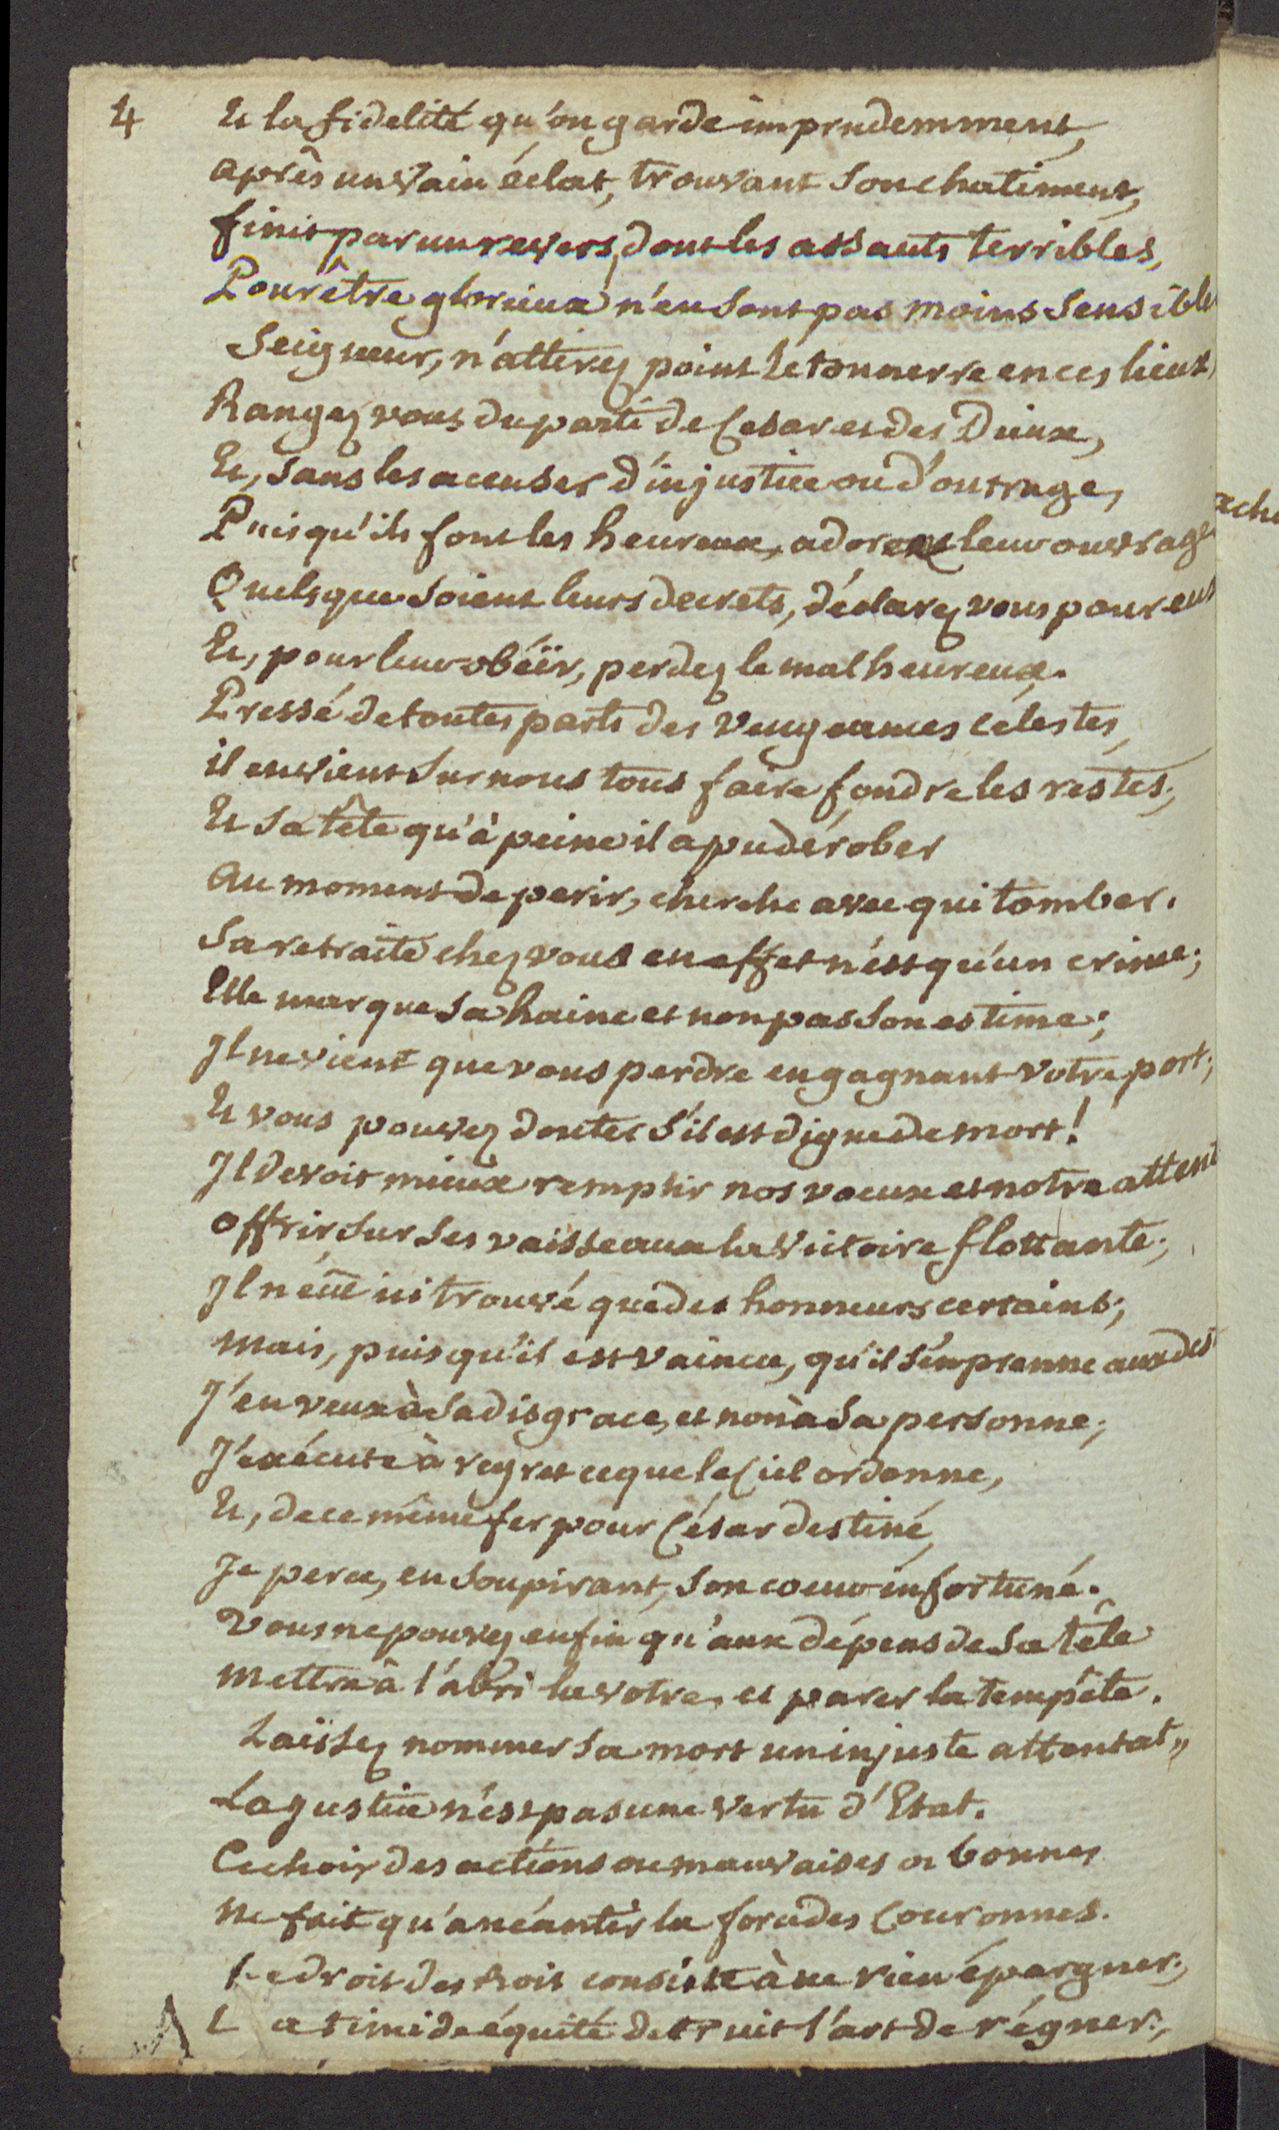 4
Et la fidelité qu'on garde imprudemment,
après un vain éclat, trouvant son chatiment,
finit par un revers, dont les assauts terribles,
Pour être glorieux n'en sont pas moins sensible
Seigneur, n'attirez point le tonnerre en ces lieux,
Rangez vous du parti de Cesar et des Dieux,
Et, sans les accuser d'injustice ou d'outrage,
Puisqu'ils font les heureux, adorez leur ouvrage
Quelsque soient leurs decrets, déclarez vous pour eux
Et, pour leur obéïr, perdez le malheureux.
Pressé de toutes parts des vengeances célestes,
il en vient sur nous tous faire fondre les restes;
Et sa tête qu'à peine il a pu dérober
Au moment de perir, cherche avec qui tomber.
Sa retraite chez vous en effet n'est qu'un crime;
Elle marque sa haine et non pas son estime;
Il ne vient que vous perdre en gagnant votre port;
Et vous pouvez douter s'il est digne de mort!
Il devoit mieux remplir nos voeux et notre attent
offrir sur ses vaisseaux la victoire flottante;
Il n'eût ici trouvé que des honneurs certains;
Mais, puisqu'il est vaincu, qu'il s'en prenne aux des
J'en veux à sa disgrace, et non à sa personne;
J'exécute à regret ce que le Ciel ordonne,
Et, de ce même fer pour César destiné,
Je perce, en soupirant, son coeur infortuné.
Vous ne pouvez enfin qu'aux dépens de sa tête
Mettre à l'abri la votre, et parer la tempête.
Laissez nommer sa mort un injuste attentat,,
La justice n'est pas une vertu d'Etat.
Ce choix des actions ou mauvaises ou bonnes
Ne fait qu'anéantir la force des Couronnes.
Le droit des Rois consiste à ne rien épargner;
La timide équité detruit l'art de régner;
ache